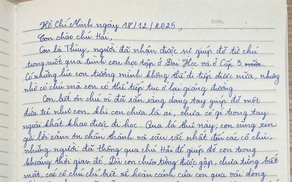 Hồ Chí Minh, ngày 18/12/2025,
Con chào chú Hải,
Con là Thùy, người đã nhận được sự giúp đỡ từ chú
trong suốt quá trình con học tập ở Đại Học và ở Cấp 3
Có những lúc con tưởng mình không thể đi tiếp được nữa, nhưng
nhờ có chú mà con có thể tiếp tục ở lại giảng đường.
Con biết ơn chú vì đã sẵn sàng dang tay giúp đỡ một
đứa trẻ như con, khi con chưa là ai, chưa có gì trong tay
ngoài khát khao được đi học. Qua lá thư này, con cũng xin
gửi lời cảm ơn chân thành và sâu sắc nhất đến các cô chú
những người đã thông qua chú Hải để giúp đỡ con trong
khoảng thời gian đó. Dù con chưa từng được gặp, chưa từng biết
mặt, các cô chú chỉ biết về hoàn cảnh của con qua vài dòng